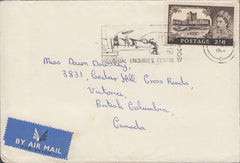 POSTAGE 2/6
ENQUIRIES CENTRE
Miss Dawn
3831, Cedar Hill Cross Roads,
Victoria,
British Columbia,
Canada.
BY AIR MAIL